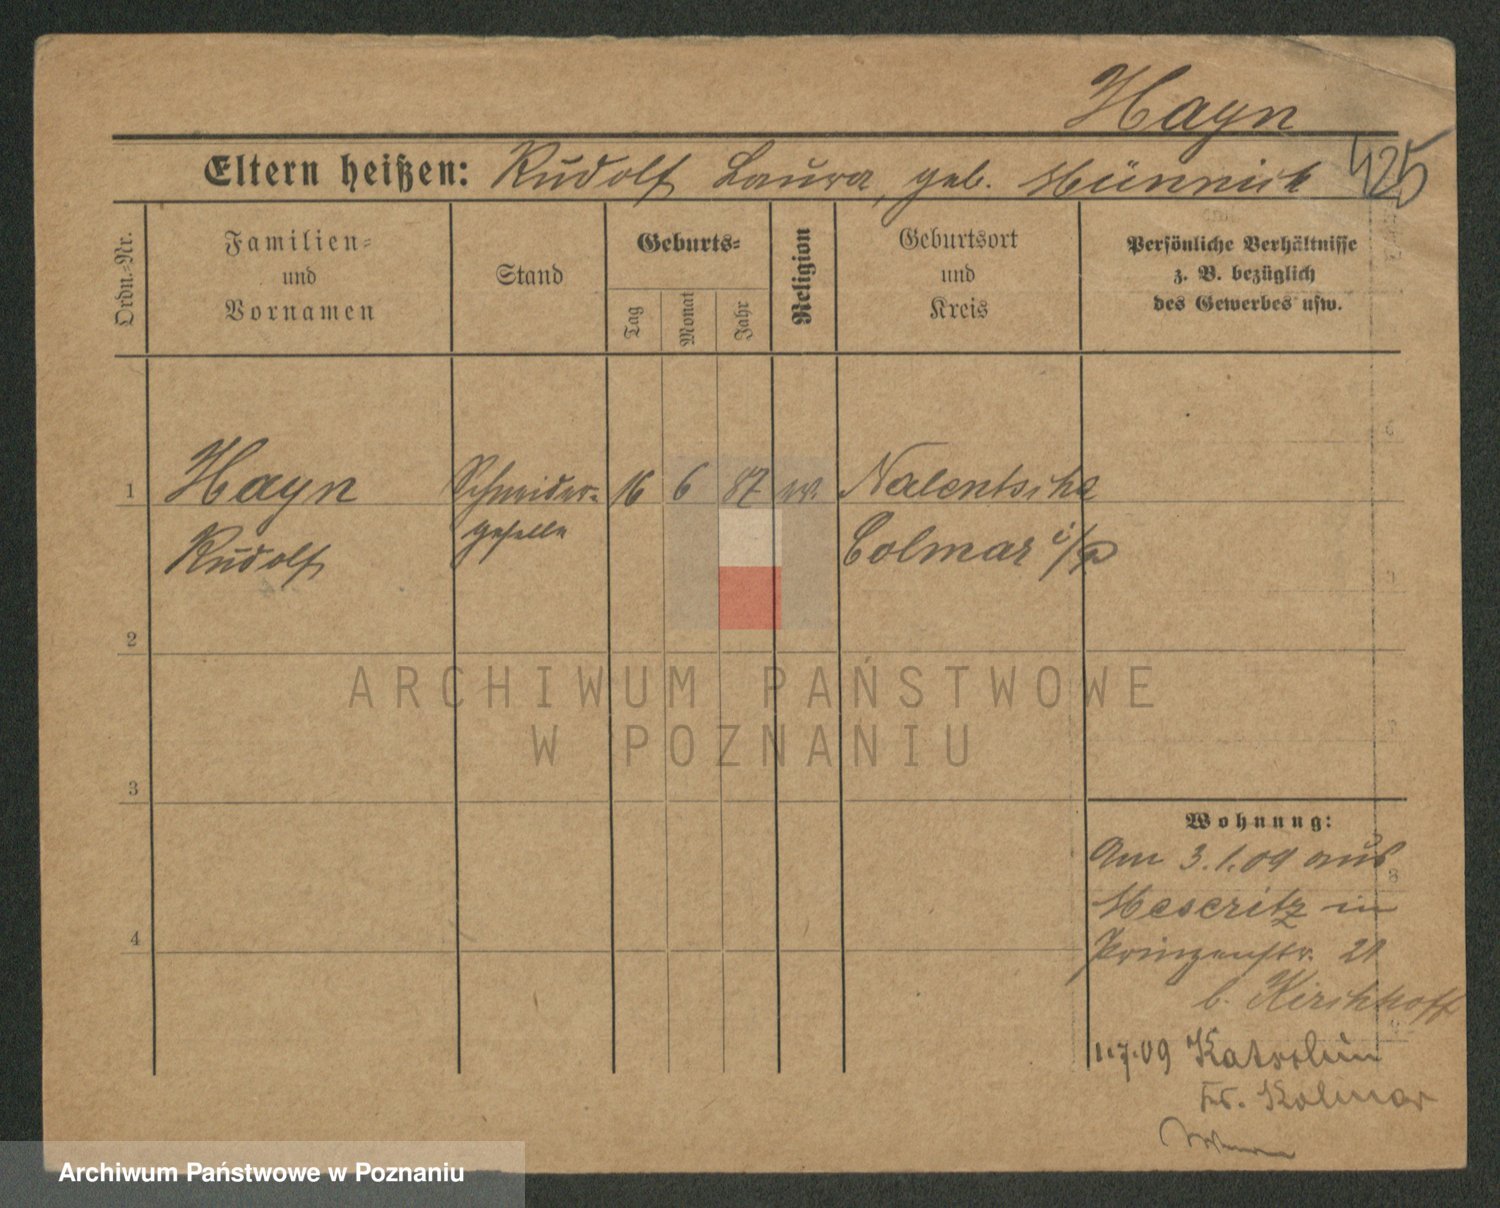 Hayn
425
Eltern heißen: Rudolf Laura, geb. Münnich
Ordn.-Nr.
Familien-
und
Vornamen
Stand
Geburts-
Tag
Monat
Jahr
Religion
Geburtsort
und
Kreis
Persönliche Verhältnisse
z. B. bezüglich
des Gewerbes usw.
1 Hayn Schneider- 16 6 87 ev. Nalentscha
Rudolf geselle Colmar i/P
2
3
4
ARCHIWUM PAŃSTWOWE
W POZNANIU
Wohnung:
Am 3.1.09 aus
Meseritz in
Prinzenstr. 21
b. Kirchhoff
1.7.09
Kr. Kolmar
Archiwum Państwowe w Poznaniu